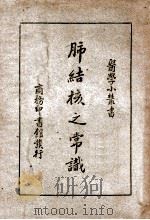 醫學小叢書
肺結核之常識
商務印書館發行